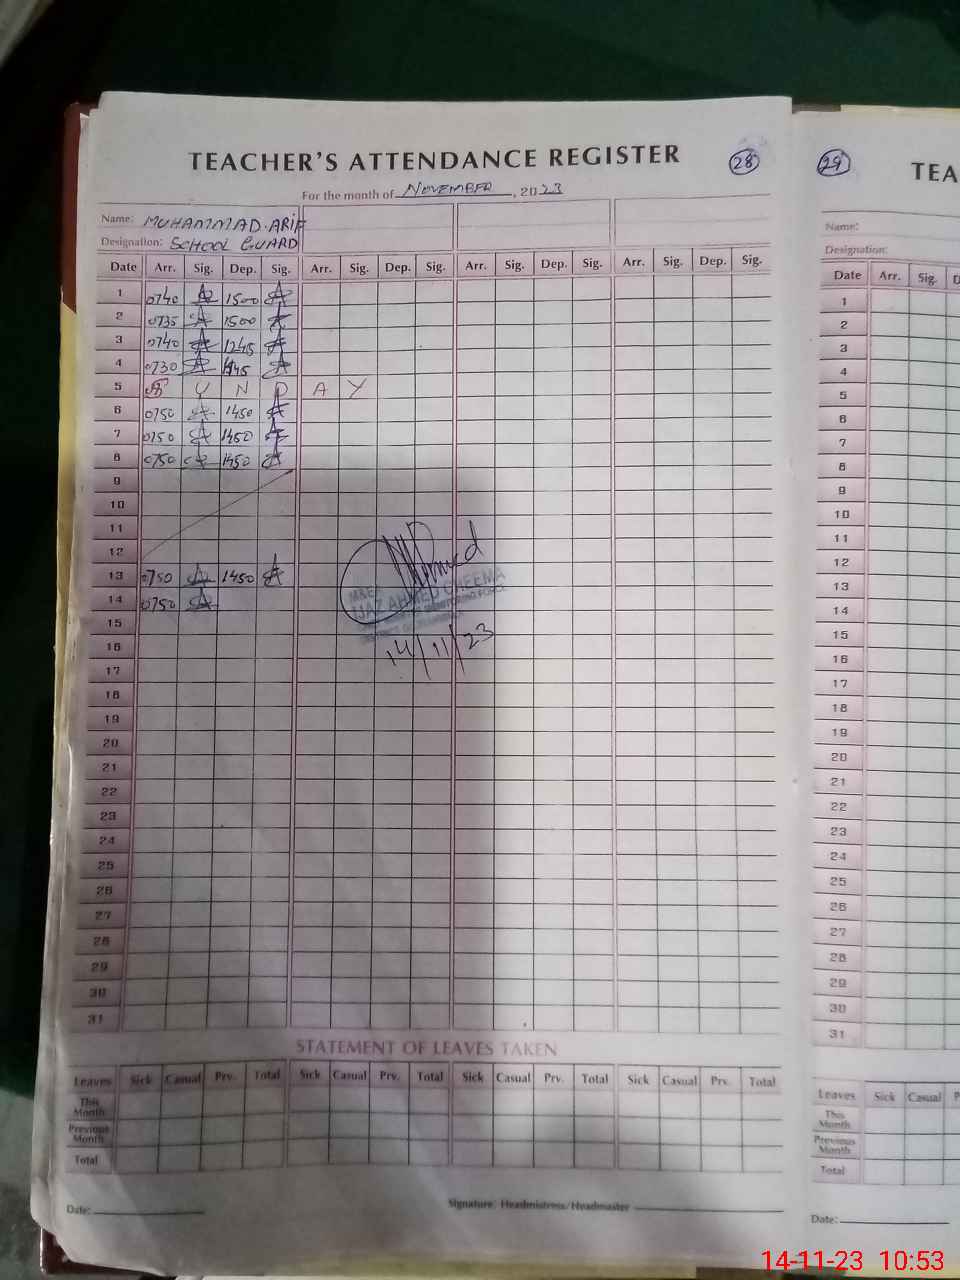 TEACHER'S ATTENDANCE REGISTER 28
For the month of NOVEMBER, 2023
Name: MUHAMMAD ARIF
Designation: SCHOOL GUARD
Date Arr. Sig. Dep. Sig. Arr. Sig. Dep. Sig. Arr. Sig. Dep. Sig. Arr. Sig. Dep. Sig.
1 0740 1500
2 0735 1500
3 0740 1245
4 0730
5 S U N D A Y
6 0750 1450
7 0750 1450
8 0750 1450
9
10
11
12
13 0750 1450
14 0750
M&E
IJAZ AHMED CHEEMA
MONITORING FORCE
14/11/23
15
16
17
18
19
20
21
22
23
24
25
26
27
28
29
30
31
STATEMENT OF LEAVES TAKEN
Leaves Sick Casual Prv. Total Sick Casual Prv. Total Sick Casual Prv. Total Sick Casual Prv. Total
This Month
Previous Month
Total
Date: Signature: Headmistress/Headmaster
29 TEA
Name:
Designation:
Date Arr. Sig. D
1
2
3
4
5
6
7
8
9
10
11
12
13
14
15
16
17
18
19
20
21
22
23
24
25
26
27
28
29
30
31
Leaves Sick Casual P
This Month
Previous Month
Total
Date:
14-11-23 10:53